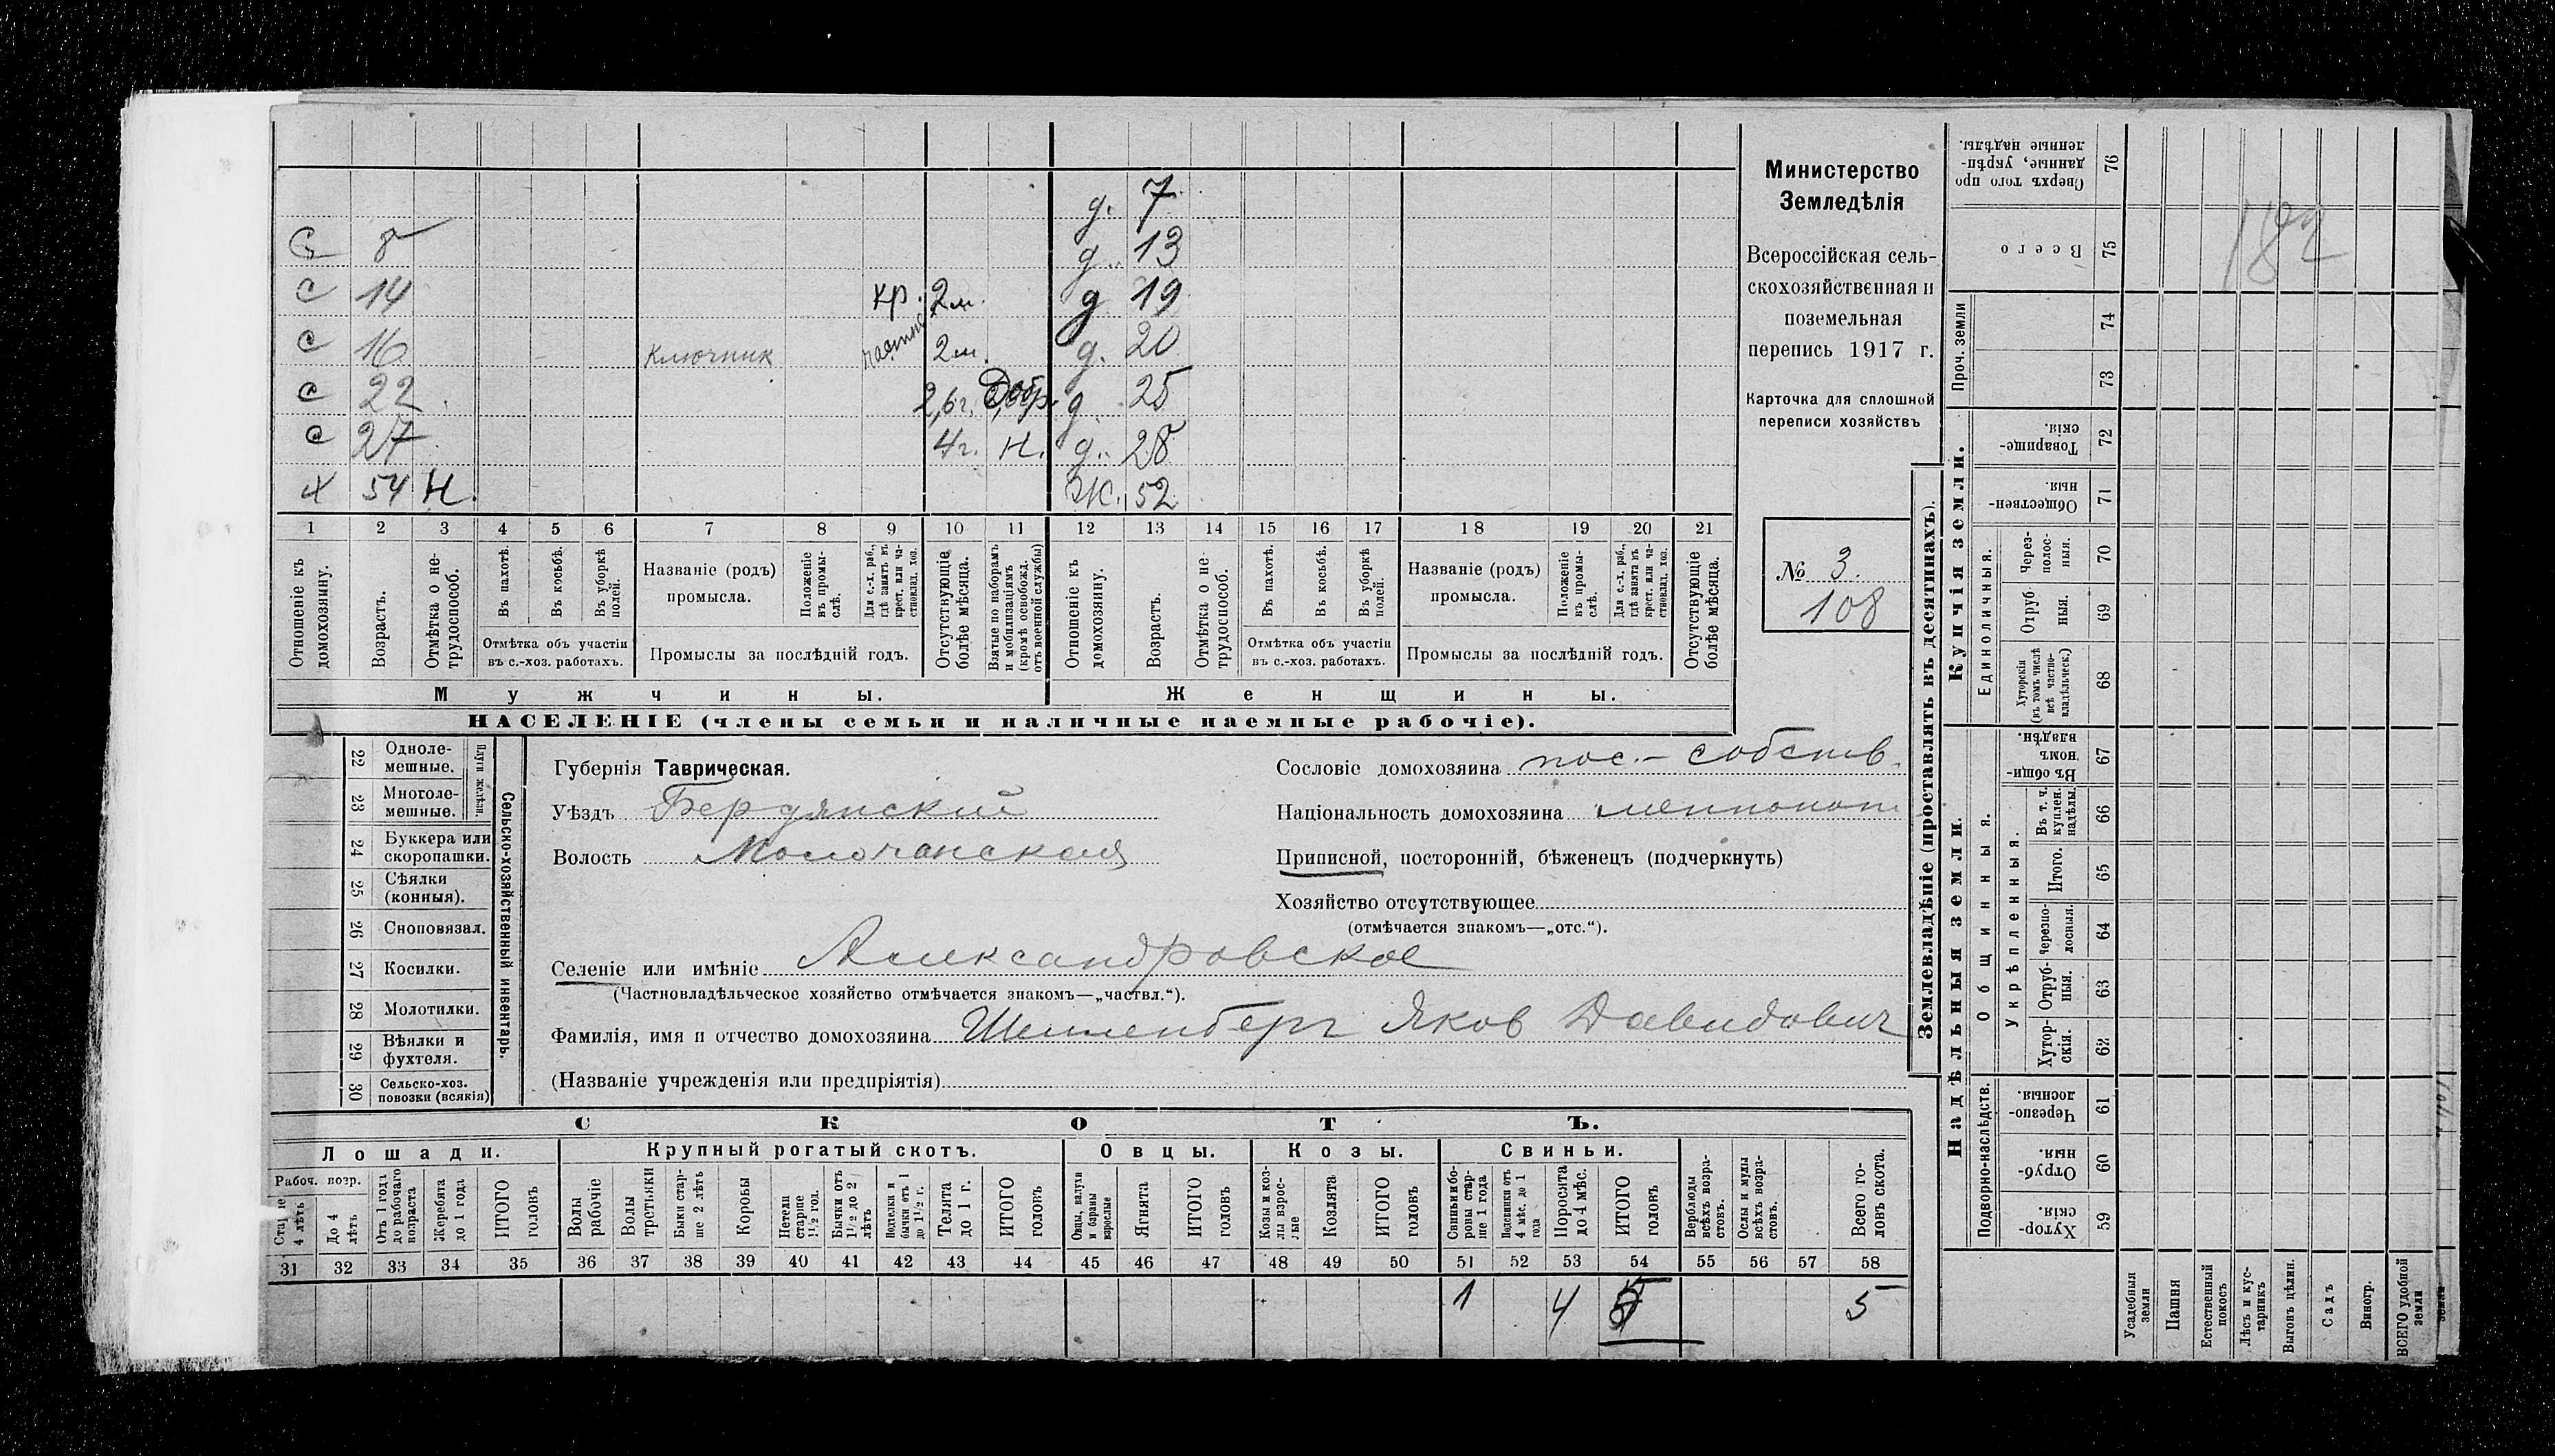 д. 7
С 8 д. 13
С 14 кр. 2 м. д 19
С 16 ключник частн. 2 м. д. 20
С 22 2,6 г. Добр. д. 25
С 27 4 г. Н. д. 28
Х 54 Н. Ж. 52
1 2 3 4 5 6 7 8 9 10 11 12 13 14 15 16 17 18 19 20 21
Отношеніе къ домохозяину.
Возрастъ.
Отмѣтка о нетрудоспособ.
Въ пахотѣ.
Въ косьбѣ.
Въ уборкѣ полей.
Отмѣтка объ участіи въ с.-хоз. работахъ.
Названіе (родъ) промысла.
Положеніе въ промыслѣ.
Для с.-х. раб., гдѣ занятъ въ крест. или частновлад. хоз.
Промыслы за послѣдній годъ.
Отсутствующіе болѣе мѣсяца.
Взятые по наборамъ и мобилизаціямъ (кромѣ освобожд. отъ военной службы)
Отношеніе къ домохозяину.
Возрастъ.
Отмѣтка о нетрудоспособ.
Въ пахотѣ.
Въ косьбѣ.
Въ уборкѣ полей.
Отмѣтка объ участіи въ с.-хоз. работахъ.
Названіе (родъ) промысла.
Положеніе въ промыслѣ.
Для с.-х. раб., гдѣ занята въ крест. или частновлад. хоз.
Промыслы за послѣдній годъ.
Отсутствующіе болѣе мѣсяца.
Мужчины. Женщины.
НАСЕЛЕНІЕ (члены семьи и наличные наемные рабочіе).
Министерство
Земледѣлія
Всероссійская сель-
скохозяйственная и
поземельная
перепись 1917 г.
Карточка для сплошной
переписи хозяйствъ
№ 3.
108
22 Однолемешные.
23 Многолемешные.
Плуги желѣзн.
24 Буккера или скоропашки.
25 Сѣялки (конныя).
26 Сноповязал.
27 Косилки.
28 Молотилки.
29 Вѣялки и фухтеля.
30 Сельско-хоз. повозки (всякія)
Сельско-хозяйственный инвентарь.
Губернія Таврическая.
Уѣздъ Бердянский
Волость Молочанская
Сословіе домохозяина пос.-собств.
Національность домохозяина меннонит
Приписной, посторонній, бѣженецъ (подчеркнуть)
Хозяйство отсутствующее
(отмѣчается знакомъ—„отс.“).
Селеніе или имѣніе Александровское
(Частновладѣльческое хозяйство отмѣчается знакомъ—„частвл.“).
Фамилія, имя и отчество домохозяина Шелленберг Яков Давидович
(Названіе учрежденія или предпріятія)
СКОТЪ.
Лошади. Крупный рогатый скотъ. Овцы. Козы. Свиньи.
Рабоч. возр.
Старше 4 лѣтъ
До 4 лѣтъ
Отъ 1 года до рабочаго возраста
Жеребята до 1 года
ИТОГО головъ
Волы рабочіе
Волы третьяки
Быки старше 2 лѣтъ
Коровы
Нетели старше 1 1/2 год.
Бычки отъ 1 1/2 до 2 лѣтъ
Подтелки и бычки отъ 1 до 1 1/2 г.
Телята до 1 г.
ИТОГО головъ
Овцы, валухи и бараны взрослые
Ягнята
ИТОГО головъ
Козы и козлы взрослые
Козлята
ИТОГО головъ
Свиньи и боровы старше 1 года
Подсвинки отъ 4 мѣс. до 1 года
Поросята до 4 мѣс.
ИТОГО головъ
Верблюды всѣхъ возрастовъ.
Ослы и мулы всѣхъ возрастовъ.
Всего головъ скота.
31 32 33 34 35 36 37 38 39 40 41 42 43 44 45 46 47 48 49 50 51 52 53 54 55 56 57 58
1 4 5 5
Землевладѣніе (проставлять въ десятинахъ).
Купчія земли.
Надѣльныя земли.
Проч. земли
Единоличныя.
Общинныя.
Укрѣпленныя.
Подворно-наслѣдств.
Сверхъ того проданные, укрѣпленные надѣлы. 76
Всего 75
74
73
Товарищескія. 72
Общественныя. 71
Черезполосныя. 70
Отрубныя. 69
Хуторскія (въ томъ числѣ всѣ частновладѣльческ.) 68
Въ общинномъ владѣн. 67
Въ т. ч. куплен. надѣлы. 66
Итого. 65
Черезполосныя. 64
Отрубныя. 63
Хуторскія. 62
Черезполосныя. 61
Отрубныя. 60
Хуторскія. 59
Усадебныя земли
Пашня
Естественный покосъ
Лѣсъ и кустарникъ
Выгонъ цѣлин.
Садъ
Виногр.
ВСЕГО удобной земли
182